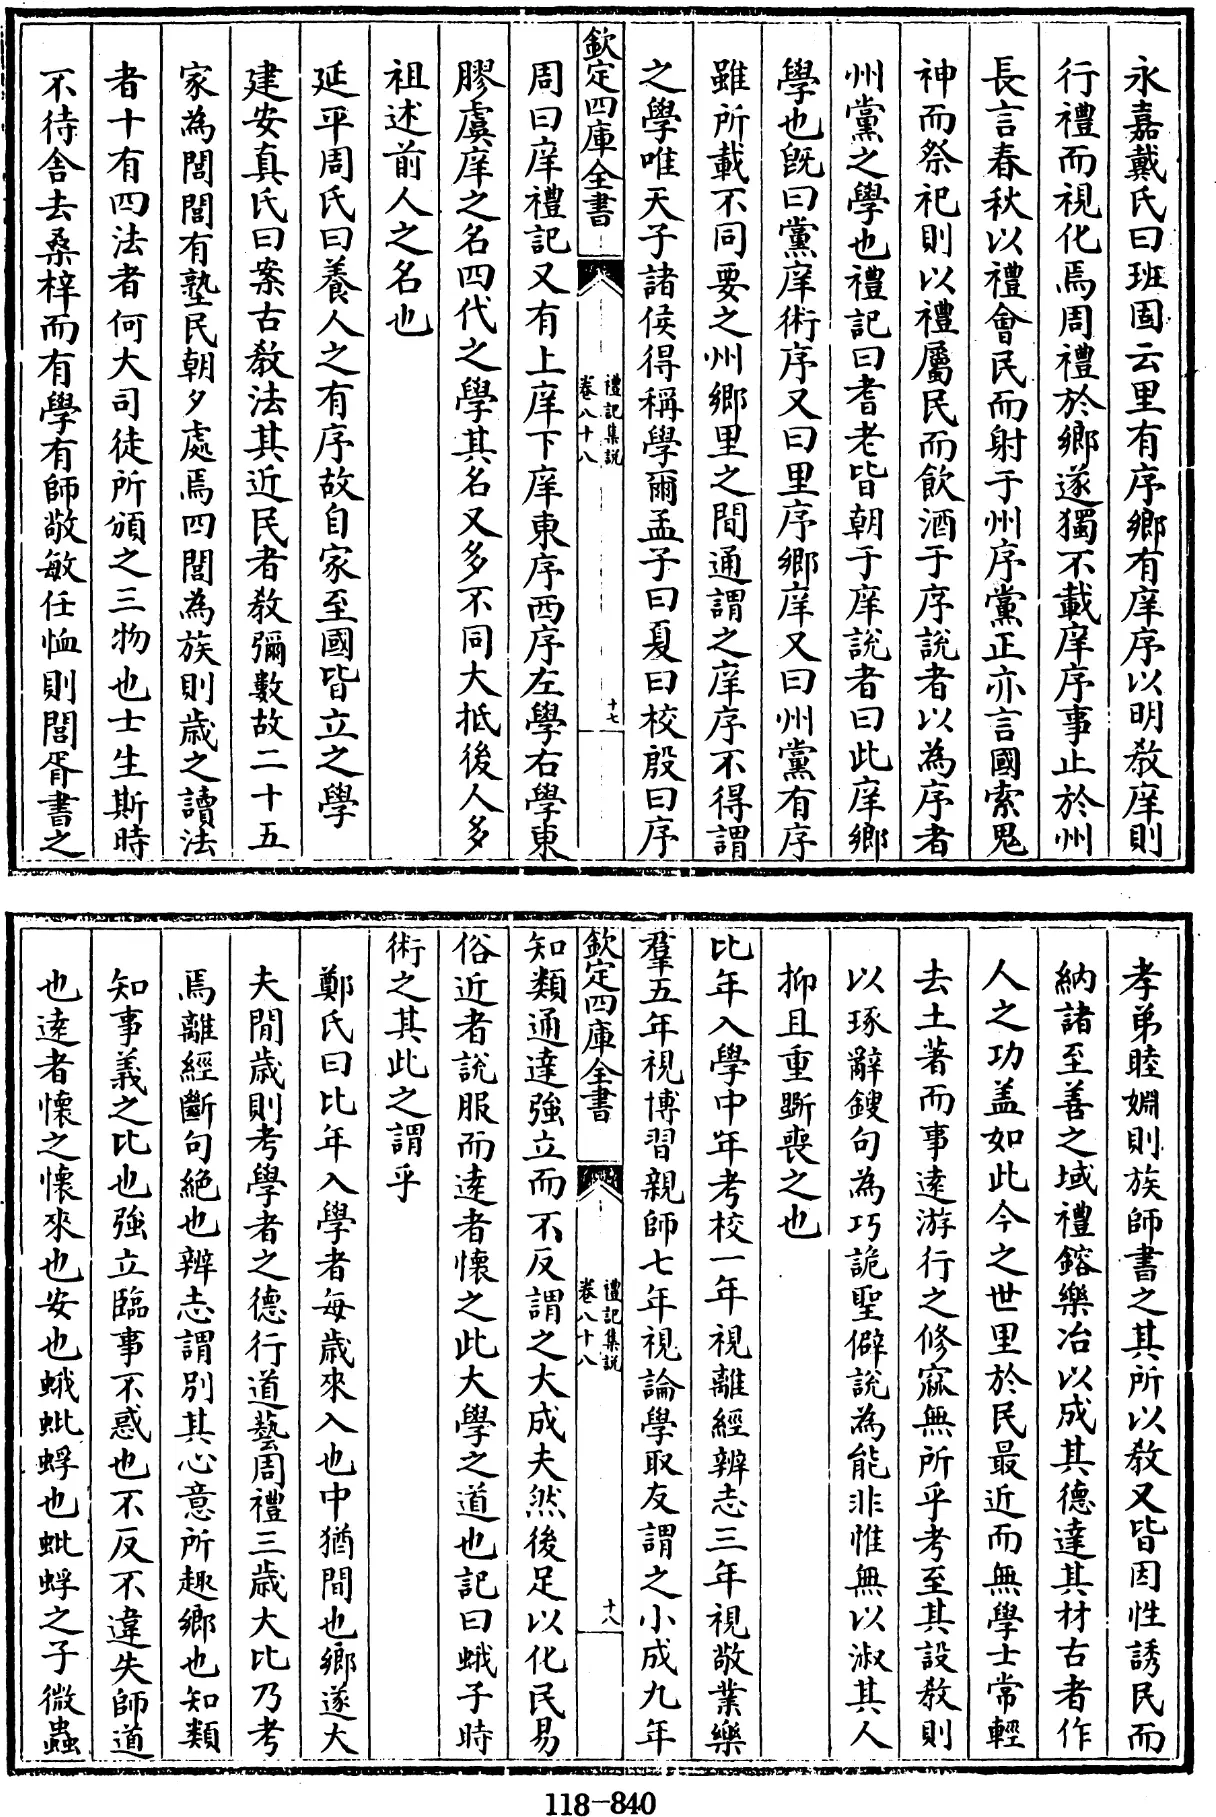 永嘉戴氏曰班固云里有序鄉有庠序以明教庠則
行禮而視化焉周禮於鄉遂獨不載庠序事止於州
長言春秋以禮會民而射于州序黨正亦言國索鬼
神而祭祀則以禮屬民而飲酒于序說者以為序者
州黨之學也禮記曰耆老皆朝于庠說者曰此庠鄉
學也旣曰黨庠術序又曰里序鄉庠又曰州黨有序
雖所載不同要之州鄉里之間通謂之庠序不得謂
之學唯天子諸侯得稱學爾孟子曰夏曰校殷曰序
欽定四庫全書
禮記集說
卷八十八
十七
周曰庠禮記又有上庠下庠東序西序左學右學東
膠虞庠之名四代之學其名又多不同大抵後人多
祖述前人之名也
延平周氏曰養人之有序故自家至國皆立之學
建安真氏曰案古教法其近民者教彌數故二十五
家為閭閭有塾民朝夕處焉四閭為族則歲之讀法
者十有四法者何大司徒所頒之三物也士生斯時
不待舍去桑梓而有學有師敬敏任恤則閭胥書之
孝弟睦婣則族師書之其所以教又皆因性誘民而
納諸至善之域禮鎔樂冶以成其德達其材古者作
人之功盖如此今之世里於民最近而無學士常輕
去土著而事遠游行之修窳無所乎考至其設教則
以琢辭鎪句為巧詭聖僻說為能非惟無以淑其人
抑且重斲喪之也
比年入學中年考校一年視離經辨志三年視敬業樂
羣五年視博習親師七年視論學取友謂之小成九年
欽定四庫全書
禮記集說
卷八十八
十八
知類通達強立而不反謂之大成夫然後足以化民易
俗近者說服而遠者懷之此大學之道也記曰蛾子時
術之其此之謂乎
鄭氏曰比年入學者每歲來入也中猶間也鄉遂大
夫間歲則考學者之德行道藝周禮三歲大比乃考
焉離經斷句絕也辨志謂別其心意所趣鄉也知類
知事義之比也強立臨事不惑也不反不違失師道
也遠者懷之懷來也安也蛾蚍蜉也蚍蜉之子微蟲
118-840